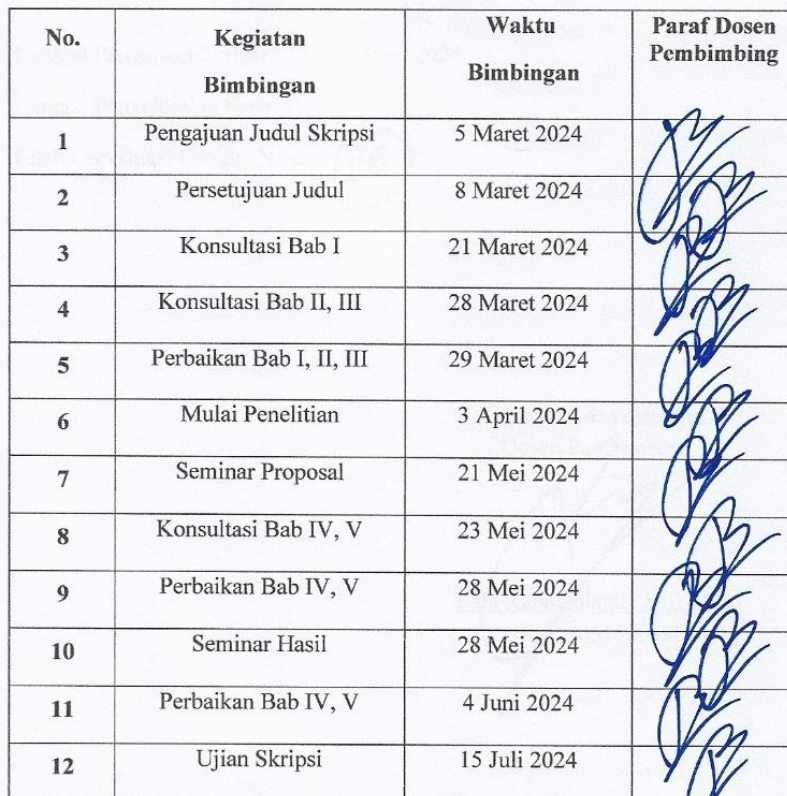 No. Kegiatan Bimbingan Waktu Bimbingan Paraf Dosen Pembimbing
1 Pengajuan Judul Skripsi 5 Maret 2024
2 Persetujuan Judul 8 Maret 2024
3 Konsultasi Bab I 21 Maret 2024
4 Konsultasi Bab II, III 28 Maret 2024
5 Perbaikan Bab I, II, III 29 Maret 2024
6 Mulai Penelitian 3 April 2024
7 Seminar Proposal 21 Mei 2024
8 Konsultasi Bab IV, V 23 Mei 2024
9 Perbaikan Bab IV, V 28 Mei 2024
10 Seminar Hasil 28 Mei 2024
11 Perbaikan Bab IV, V 4 Juni 2024
12 Ujian Skripsi 15 Juli 2024